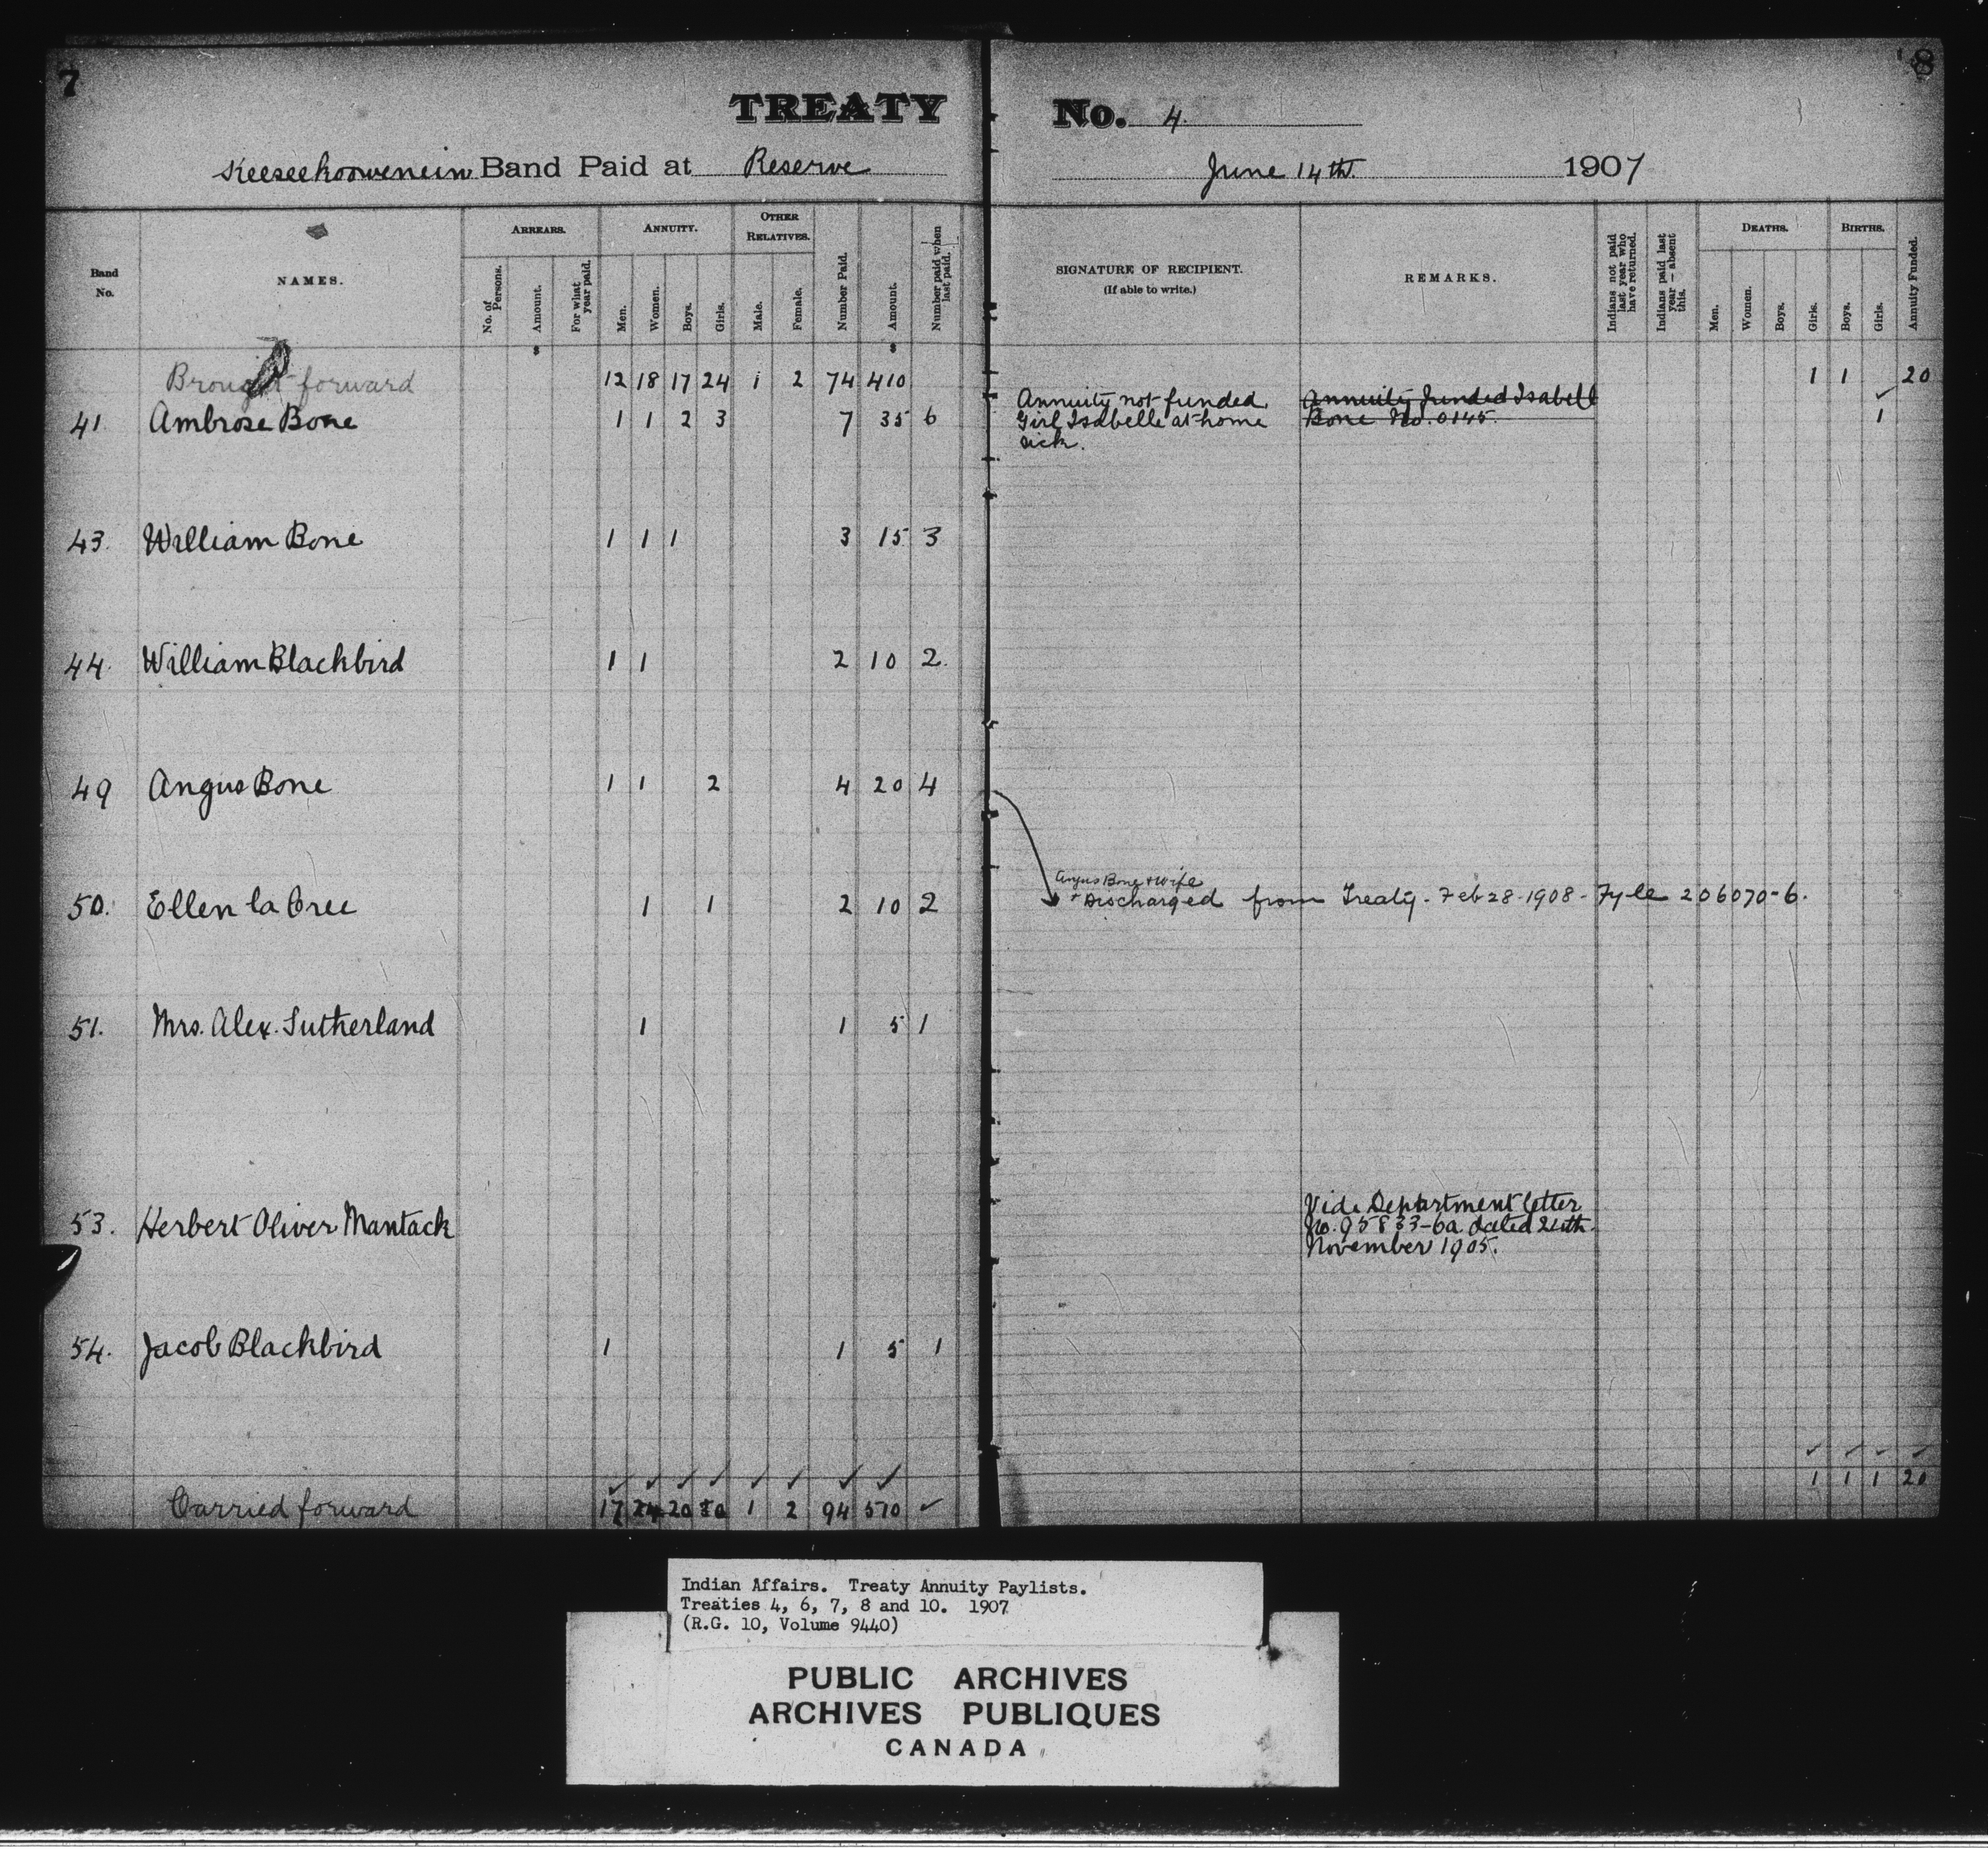 7
8
TREATY No. 4.
Keeseekoowenin Band Paid at Reserve June 14th. 1907
Band No.
NAMES.
ARREARS.
No. of Persons.
Amount.
For what year paid.
ANNUITY.
Men.
Women.
Boys.
Girls.
OTHER RELATIVES.
Male.
Female.
Number Paid.
Amount.
Number paid when last paid.
SIGNATURE OF RECIPIENT.
(If able to write.)
REMARKS.
Indians not paid last year who have returned.
Indians paid last year – absent this.
DEATHS.
Men.
Women.
Boys.
Girls.
BIRTHS.
Boys.
Girls.
Annuity Funded.
$ $
Brought forward 12 18 17 24 1 2 74 410 1 1 20
41 Ambrose Bone 1 1 2 3 7 35 6 1
Annuity not funded.
Girl Isabelle at home
sick.
Annuity funded Isabell
Bone No. 0145.
43. William Bone 1 1 1 3 15 3
44. William Blackbird 1 1 2 10 2.
49 Angus Bone 1 1 2 4 20 4
Angus Bone + wife
50. Ellen la Cree 1 1 2 10 2
Discharged from Treaty - Feb 28 - 1908 - Fyle 206070-6.
51. Mrs. Alex. Sutherland 1 1 5 1
53. Herbert Oliver Mantack
Vide Department letter
No. 95833-6a dated 24th
November 1905.
54. Jacob Blackbird 1 1 5 1
✓ ✓ ✓ ✓ ✓ ✓ ✓ ✓ ✓ ✓ ✓ ✓
Carried forward 17 24 20 30 1 2 94 570 ✓ 1 1 1 20
Indian Affairs. Treaty Annuity Paylists.
Treaties 4, 6, 7, 8 and 10. 1907
(R.G. 10, Volume 9440)
PUBLIC ARCHIVES
ARCHIVES PUBLIQUES
CANADA